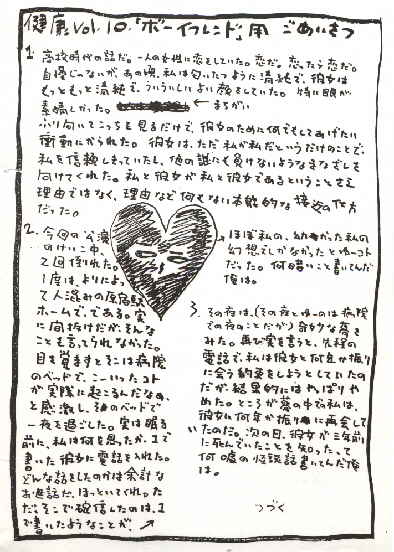 健康 Vol.10.「ボーイフレンド」用 ごあいさつ
1. 高校時代の話だ。一人の女性に恋をしていた。恋だ。恋、たぶん恋だ。
自慢じゃないが、あの頃、私は匂いたつように清純で、彼女は
もっともっと清純で、ういういしいよい顔をしていた。特に眼が
素晴しかった。
←まちがい
ふり向いてこっちを見るだけで、彼女のために何でもしてあげたい
衝動にかられた。彼女は、ただ私が私だというだけのことで、
私を信頼しきっていたし、他の誰にも負けないようなまなざしを
向けてくれた。私と彼女が私と彼女であるということさえ
理由ではなく、理由など何もない本能的な接近の仕方
だった。
2. 今回の公演
のけいこ中、
2回倒れた。
1度は、よりによっ
て人混みの原宿駅
ホームで、である。実
に間抜けだが、そんな
ことも言ってられなかった。
目を覚ますとそこは病院
のベッドで、こーいったコト
が実際に起こるんだなぁ、
と感激し、そのベッドで
一夜を過ごした。実は眠る
前に、私は何を思ったか、1で
書いた彼女に電話を入れた。
どんな話をしたのかは余計な
お世話だ、ほっといてくれ。った
だ、そこで確信したのは、1
で書いたようなことが、
→ほぼ私の、幼かった私の
幻想でしかなかったとゆーコト
だった。何暗いこと書いてんだ
俺は。
3. その夜は、(その夜とゆーのは病院
での夜のことだが)奇妙な夢を
みた。再び実を言うと、先程の
電話で、私は彼女と何年か振り
に会う約束をしようとしていたの
だが結果的にはやっぱりや
めた。ところが夢の中で私は、
彼女に何年か振りに再会して
いたのだ。次の日、彼女が三年前
に死んでいたことを知った、って
何嘘の怪談話書いてんだ俺
は。
つづく